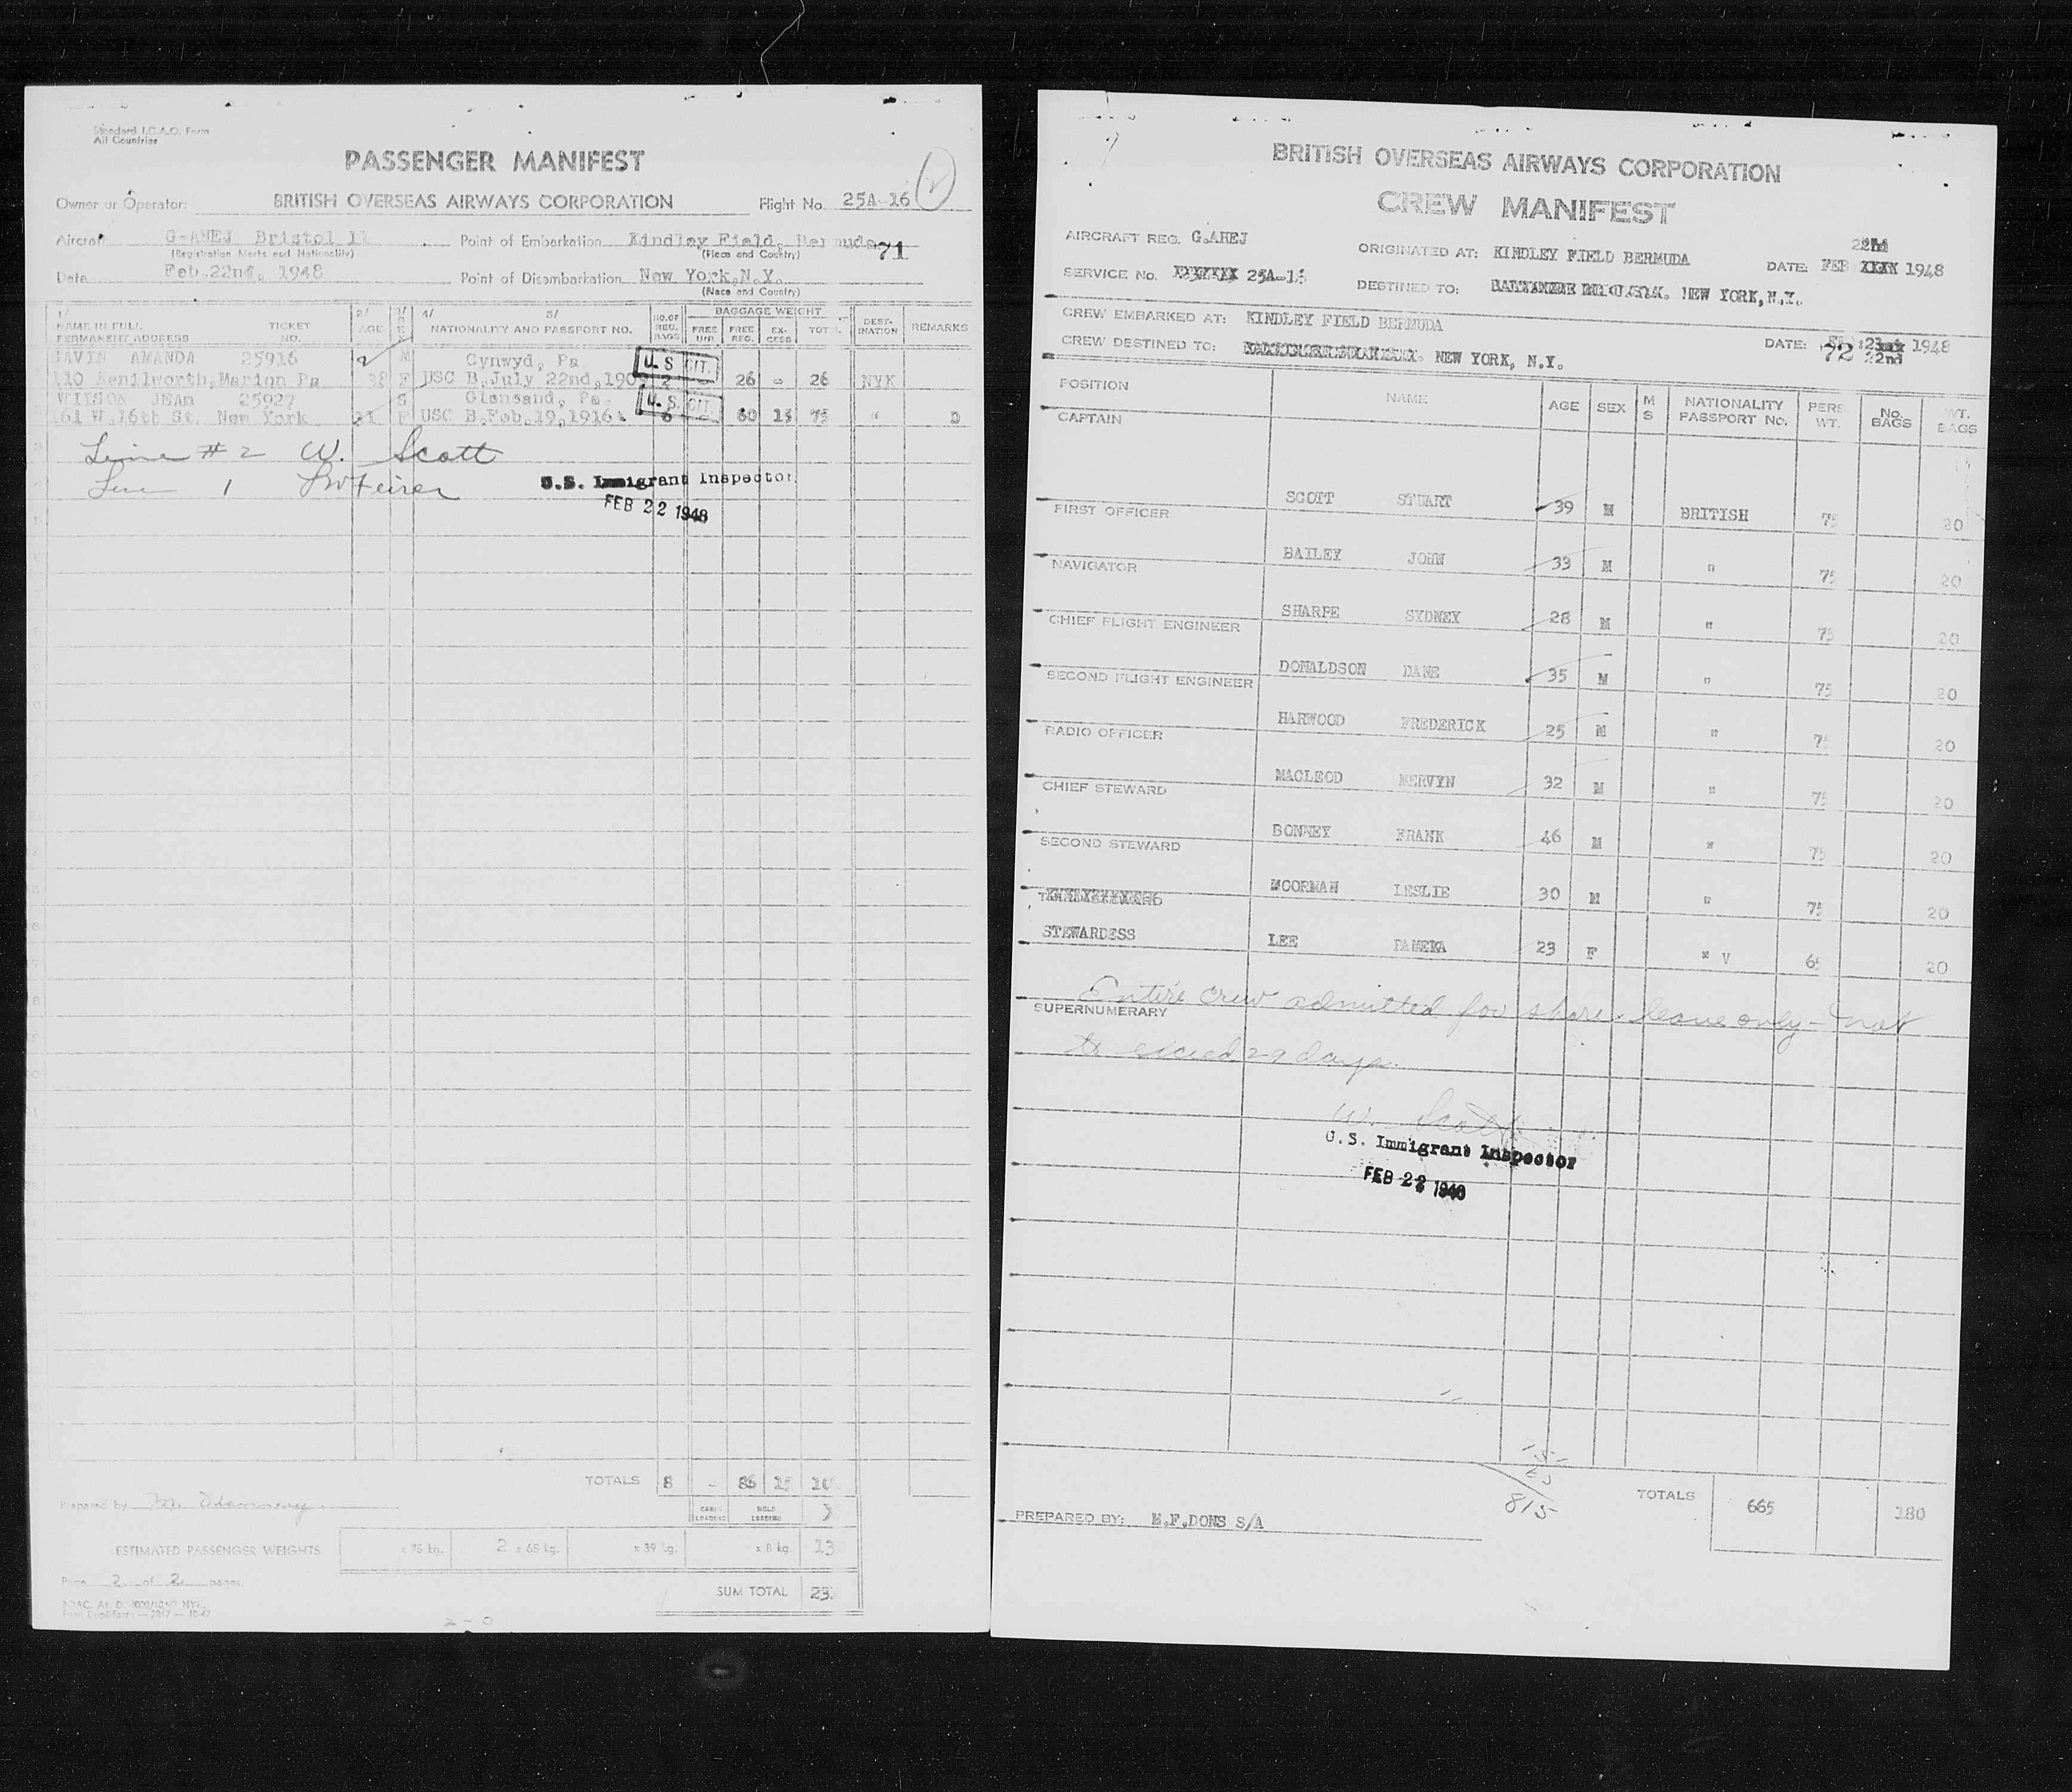 Standard I.C.A.O. Form
All Countries
PASSENGER MANIFEST
Owner or Operator: BRITISH OVERSEAS AIRWAYS CORPORATION Flight No. 25A-16 (2)
Aircraft G-AHEJ Bristol 11 Point of Embarkation Kindley Field, Bermuda 71
(Registration Marks and Nationality) (Place and Country)
Date Feb.22nd, 1948 Point of Disembarkation New York,N.Y.
(Place and Country)
1/ 2/ 3/ 4/ 5/ NO.OF REG. BAGS BAGGAGE WEIGHT DEST-INATION REMARKS
NAME IN FULL TICKET AGE SEX NATIONALITY AND PASSPORT NO. FREE FREE REG. EX-CESS
PERMANENT ADDRESS NO.
SAVIN AMANDA 25916 M Cynwyd, Pa U. S CIT.
110 Kenilworth,Marion Pa 38 F USC B.July 22nd,190 2 - 26 - 26 NYK
WILSON JEAn 25927 S Glensand, Pa. U. S. CIT.
161 W.16th St. New York 31 F USC B.Feb.19,1916 6 - 60 15 75 "
Line # 2 W. Scott
Line 1
U.S. Immigrant Inspector
FEB 22 1948
TOTALS 8 - 86 15
Prepared by
CABIN LOADING HOLD LOADING
ESTIMATED PASSENGER WEIGHTS x 75 kg. 2 x 65 kg. x 39 kg. x 8 kg. 13
Page 2 of 2 pages
SUM TOTAL 23
2 - 0
BRITISH OVERSEAS AIRWAYS CORPORATION
CREW MANIFEST
AIRCRAFT REG. G.AHEJ ORIGINATED AT: KINDLEY FIELD BERMUDA DATE: FEB 22nd 1948
SERVICE No. 25A-16 DESTINED TO: NEW YORK,N.Y.
CREW EMBARKED AT: KINDLEY FIELD BERMUDA
CREW DESTINED TO: NEW YORK, N.Y. DATE: 22nd 1948
72
POSITION NAME AGE SEX M S NATIONALITY PASSPORT NO. PERS. WT. No. BAGS WT. BAGS
CAPTAIN SCOTT STUART 39 M BRITISH 75 20
FIRST OFFICER BAILEY JOHN 33 M " 75 20
NAVIGATOR SHARPE SYDNEY 28 M " 75 20
CHIEF FLIGHT ENGINEER DONALDSON DANE 35 M " 75 20
SECOND FLIGHT ENGINEER HARWOOD FREDERICK 25 M " 75 20
RADIO OFFICER MACLEOD MERVYN 32 M " 75 20
CHIEF STEWARD BONNEY FRANK 46 M " 75 20
SECOND STEWARD MOORMAN LESLIE 30 M " 75 20
STEWARDESS LEE PAMELA 23 F " V 65 20
Entire crew admitted for shore leave only - not
SUPERNUMERARY
to exceed 29 days.
W. Scott
U.S. Immigrant Inspector
FEB 22 1948
815
TOTALS 665 180
PREPARED BY: M.F.DONS S/A